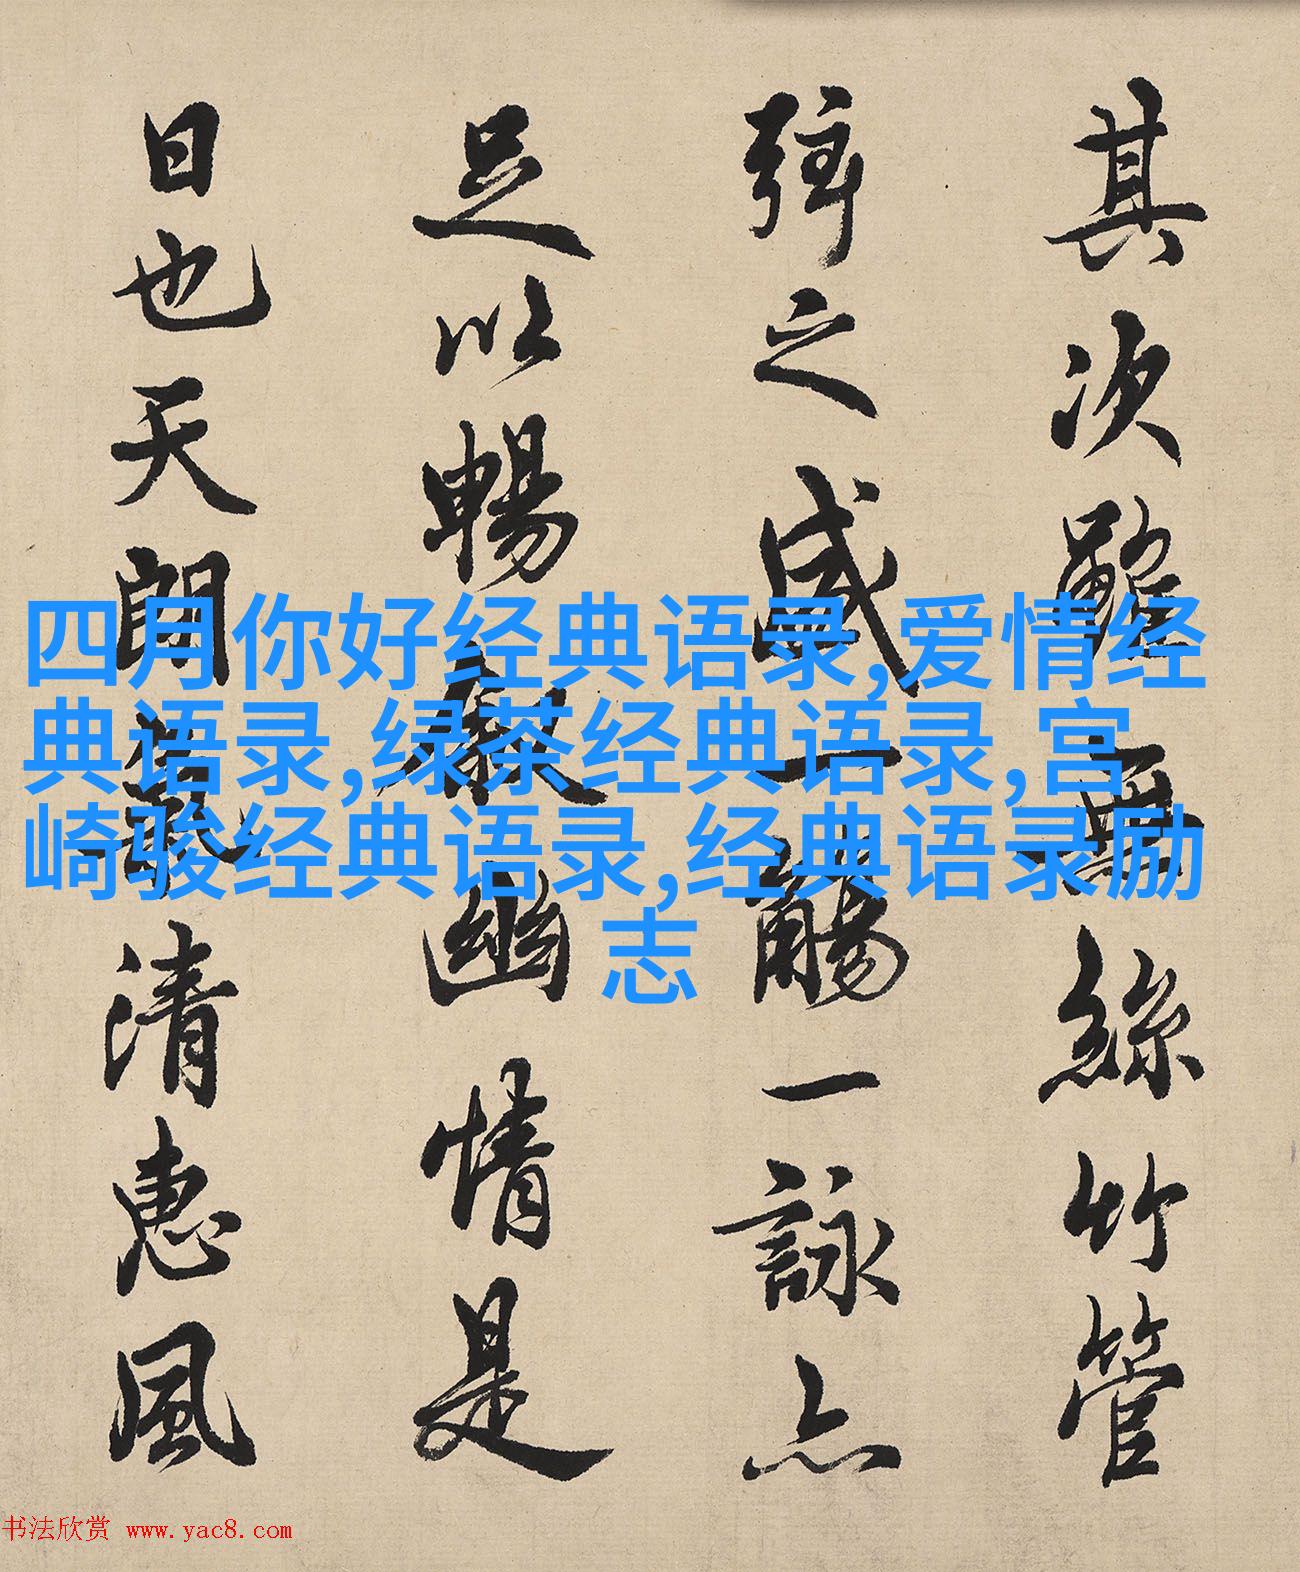 其次雖無絲竹管
弦之盛一觴一詠亦
足以暢敘幽情是
日也天朗氣清惠風
四月你好经典语录,爱情经
典语录,绿茶经典语录,宫
崎骏经典语录,经典语录励
志
书法欣赏 www.yac8.com